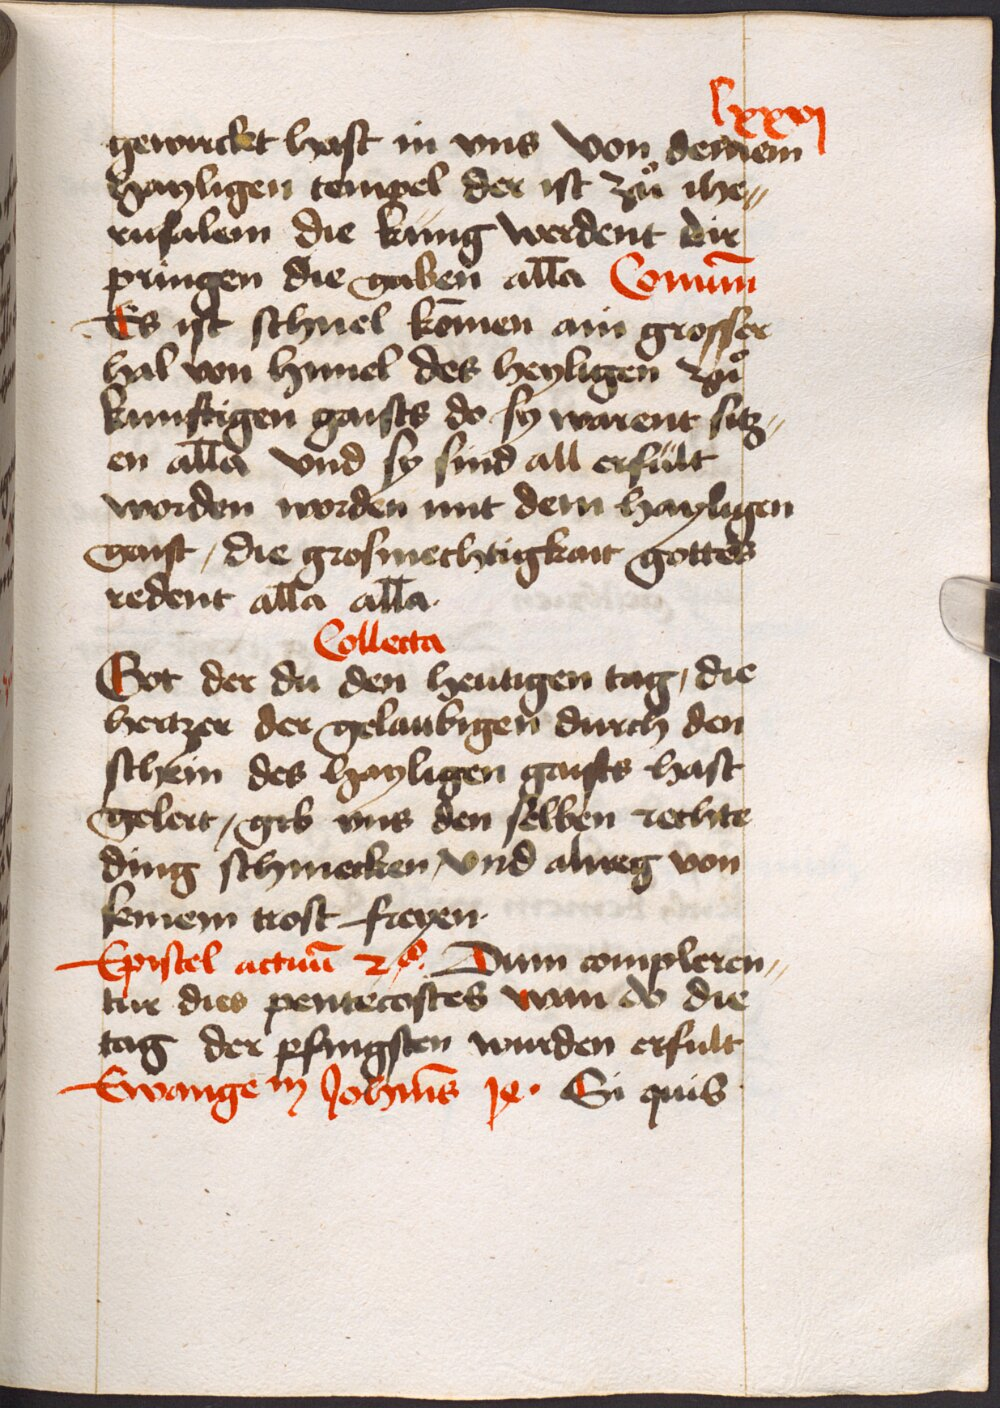 lxxxvj
gewircket hast in vns Von deinem
hayligen tempel der ist zuͦ ihe〃
rusalem die küng werdent dir
pringen die gaben all̅a Com̅un
Es ist schnel kōmen ain grosser
hal von himel des heyligen zuͦ
kunftigen gaists do sy warent sitz〃
en all̅a Vnd sy sind all erfült
worden worden mit dem hayligen
gaist / die grosmechtigkait gottes
redent all̅a all̅a.
Collecta
Got der du den heutigen tag / die
hertzer der gelaubigen durch den
schein des hayligen gaists hast
gelert / gib vns den selben rechte
ding schmecken / Vnd alweg von
seinem trost freyen.
Epistel actuū 2°. Dum compleren〃
tur dies pentecostes wan do die
tag der pfingsten wurden erfult
Ewange m Joh̅nis x. Si quis